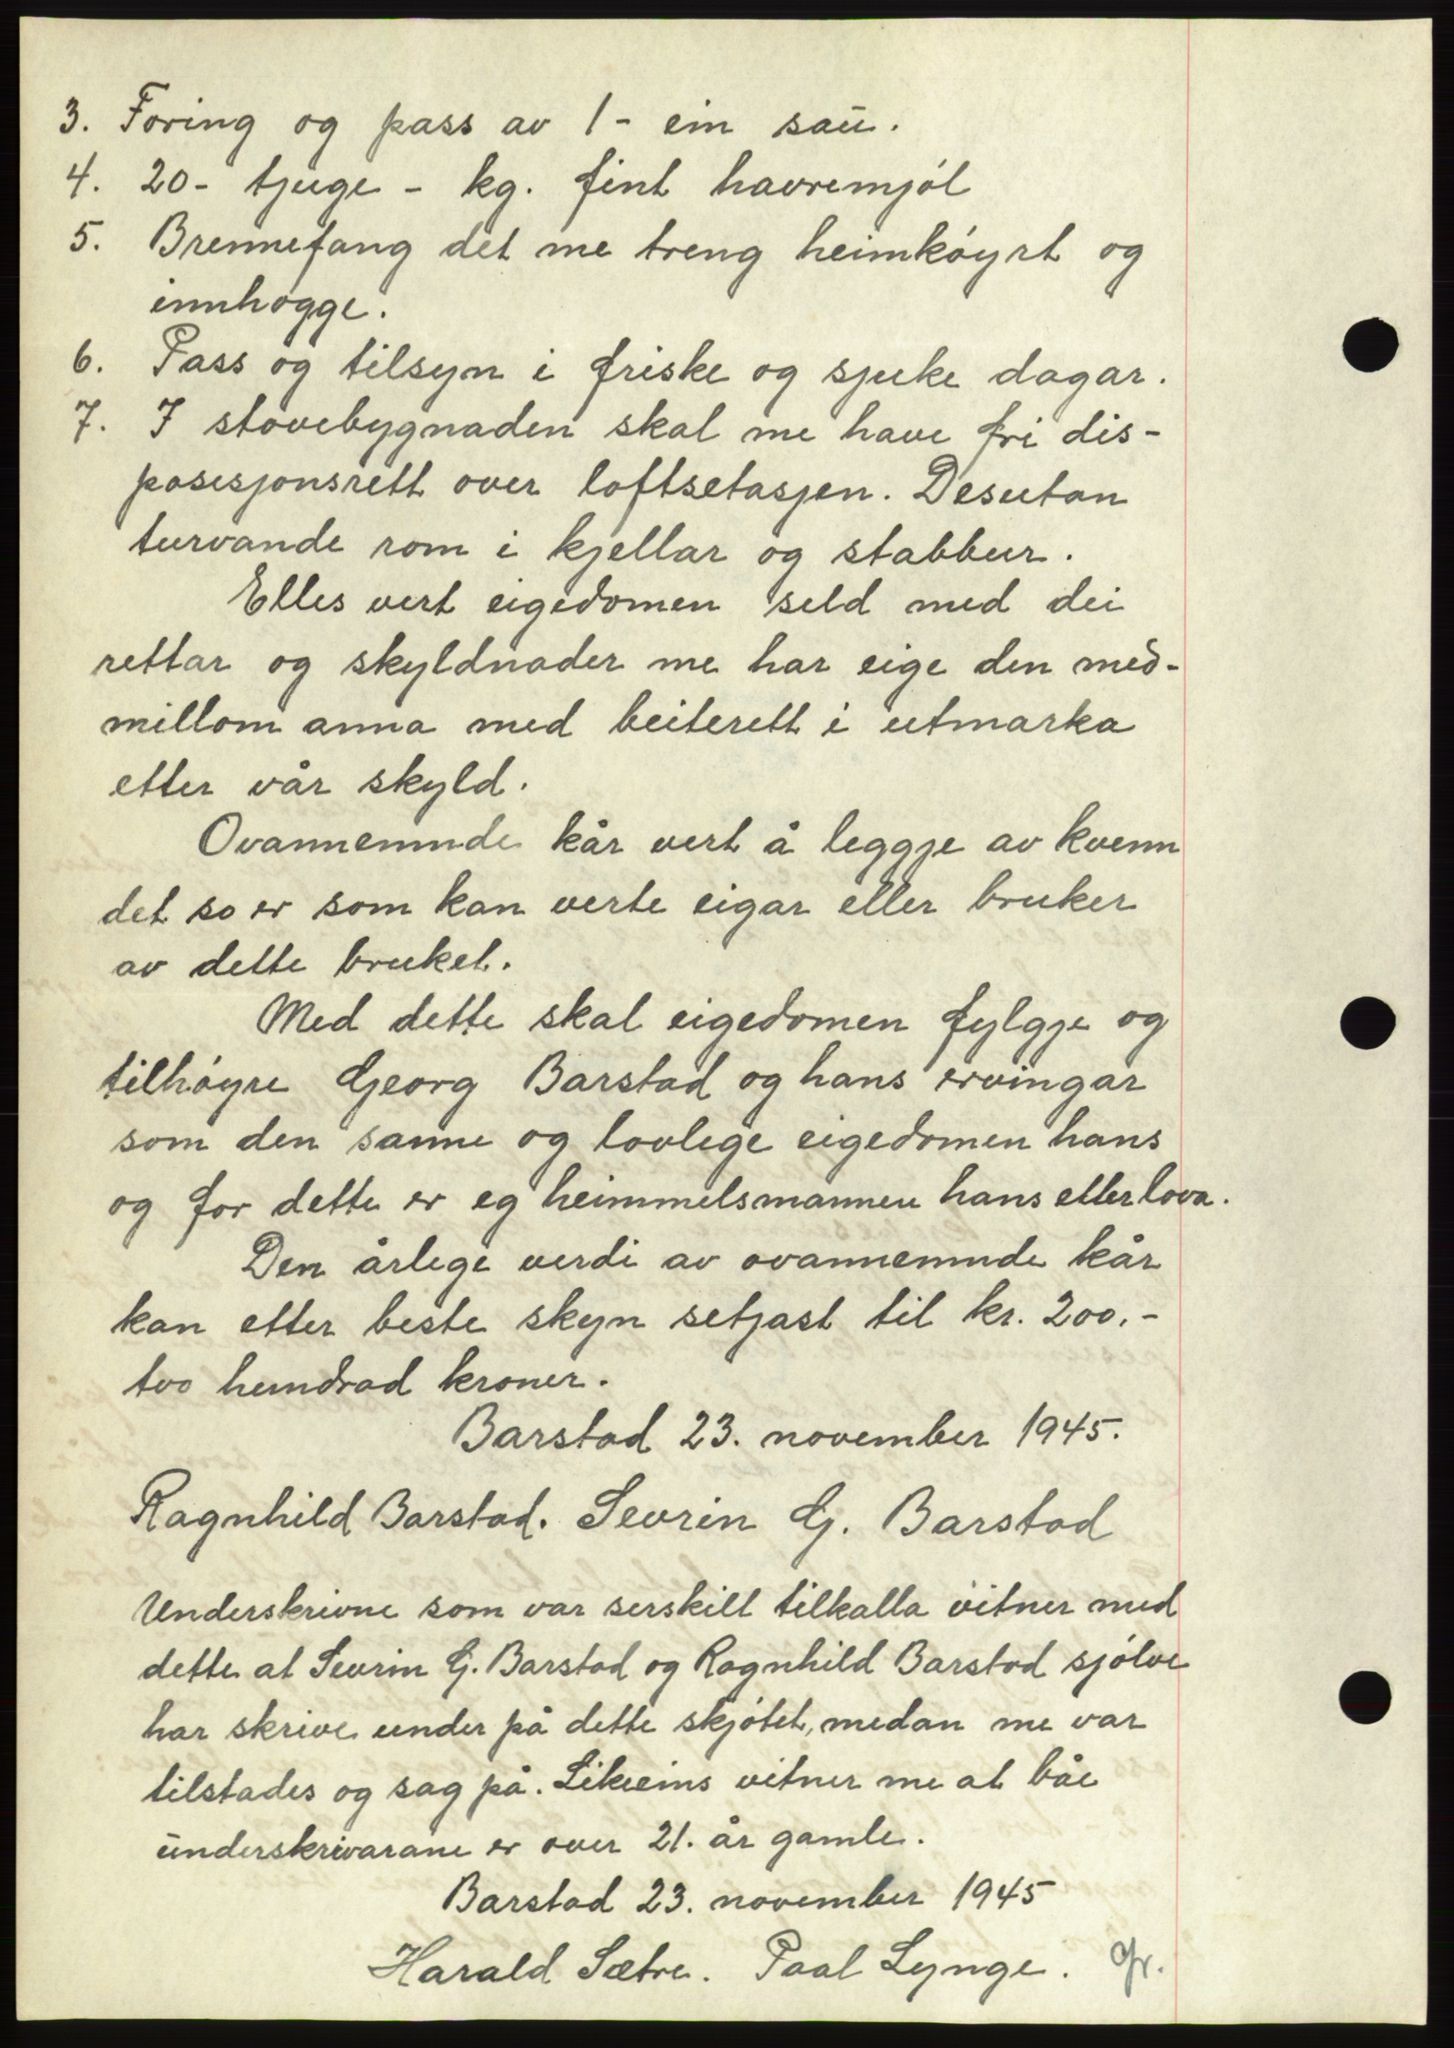 3. Foring og pass av 1 - ein sau.
4. 20 - tjuge - kg. fint havremjøl
5. Brennefang det me treng heimkøyrt og
innhogge.
6. Pass og tilsyn i friske og sjuke dagar.
7. I stovebygnaden skal me have fri dis-
posisjonsrett over loftsetasjen. Desutan
turvande rom i kjellar og stabbur.
Elles vert eigedomen seld med dei
rettar og skyldnader me har eige den med-
millom anna med beiterett i utmarka
etter vår skyld.
Ovannemnde kår vert å leggje av kvenn
det so er som kan verte eigar eller bruker
av dette bruket.
Med dette skal eigedomen fylgje og
tilhøyre Georg Barstad og hans ervingar
som den sanne og lovlege eigedomen hans
og for dette er eg heimmelsmannen hans etter lova.
Den årlege verdi av ovannemnde kår
kan etter beste skyn setjast til kr. 200.-
tvo hundrad kroner.
Barstad 23. november 1945.
Ragnhild Barstad. Sevrin G. Barstad
Underskrivne som var serskilt tilkalla vitner med
dette at Sevrin G. Barstad og Ragnhild Barstad sjølve
har skrive under på dette skjøtet, medan me var
tilstades og sag på. Likeeins vitner me at båe
underskrivarane er over 21. år gamle.
Barstad 23. november 1945
Harald Sætre. Paal Lynge. Gr.